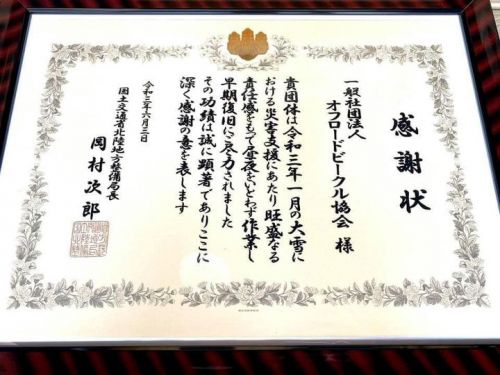 感謝状
一般社団法人
オフロードビークル協会 様
貴団体は令和三年一月の大雪に
おける災害支援にあたり旺盛なる
責任感をもって昼夜をいとわず作業し
早期復旧に尽力されました
その功績は誠に顕著でありここに
深く感謝の意を表します
令和三年六月三日
国土交通省北陸地方整備局長
岡村次郎